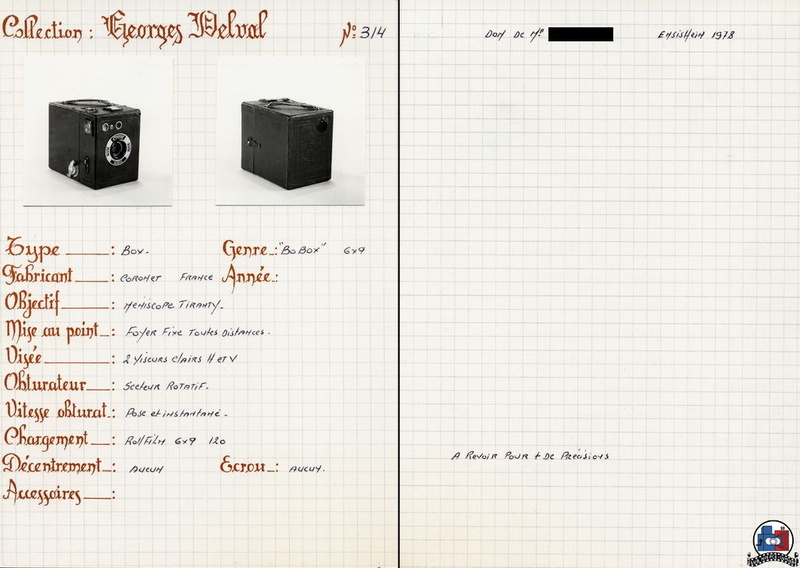 Collection : Georges Delval
N° 314
Type : Box.
Genre : "BoBox" 6x9
Fabricant : Coronet France
Année :
Objectif : Méniscope Tiranty.
Mise au point : Foyer Fixe Toutes Distances.
Visée : 2 Viseurs Clairs H et V
Obturateur : Secteur Rotatif.
Vitesse obturat. : Pose et instantané.
Chargement : RollFilm 6x9 120
Décentrement : Aucun
Ecrou : Aucun.
Accessoires :
Don de Mr Ensisheim 1978
A Revoir Pour + De Précisions